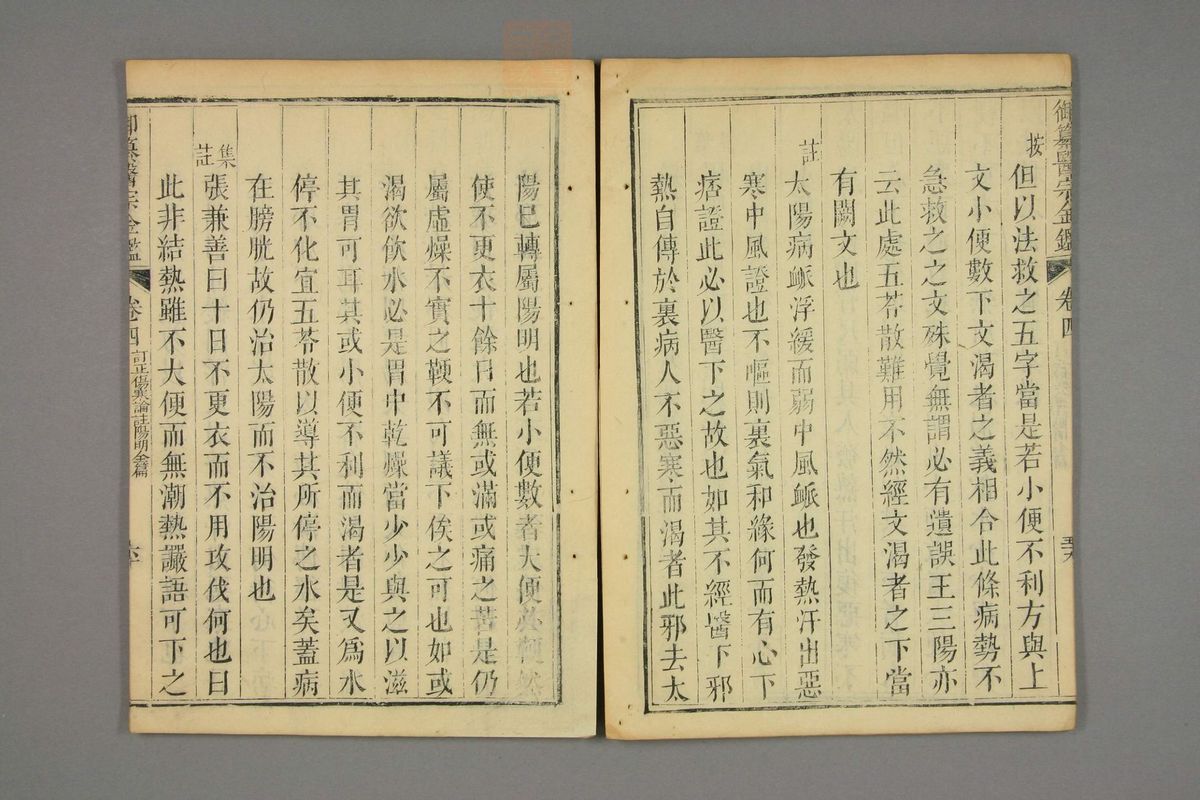 御纂醫宗金鑑 卷四 五十九
按 但以法救之五字當是若小便不利方與上
文小便數下文渴者之義相合此條病勢不
急救之之文殊覺無謂必有遺誤王三陽亦
云此處五苓散難用不然經文渴者之下當
有闕文也
註 太陽病脈浮緩而弱中風脈也發熱汗出惡
寒中風證也不嘔則裏氣和緣何而有心下
痞證此必以醫下之故也如其不經醫下邪
熱自傳於裏病人不惡寒而渴者此邪去太
陽已轉屬陽明也若小便數者大便必鞕然
使不更衣十餘日而無或滿或痛之苦是仍
屬虛燥不實之鞕不可議下俟之可也如或
渴欲飲水必是胃中乾燥當少少與之以滋
其胃可耳其或小便不利而渴者是又爲水
停不化宜五苓散以導其所停之水矣蓋病
在膀胱故仍治太陽而不治陽明也
集註 張兼善曰十日不更衣而不用攻伐何也曰
此非結熱雖不大便而無潮熱讝語可下之
御纂醫宗金鑑 卷四 訂正傷寒論註陽明全篇 六十